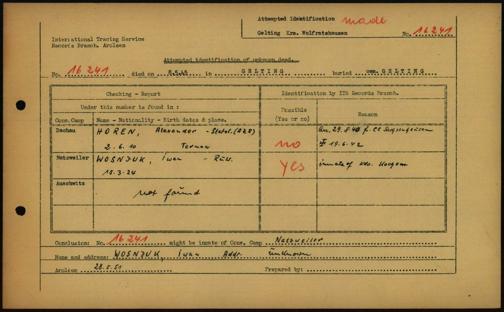 Attempted Identification made
Gelting Krs. Wolfratshausen No. 16241
International Tracing Service
Records Branch, Arolsen
Attempted identification of unknown dead.
No. 16 241 died on in GELTING buried cem. GELTING
Checking - Report
Under this number is found in:
Conc.Camp Name - Nationality - Birth dates & place.
Identification by ITS Records Branch.
Possible (Yes or no) Reason
Dachau HOREN, Alexander -
2.6.10
no
19.6.42
Natzweiler WOSNJUK, Iwan -
15.3.24
yes
Auschwitz
not found
Conclusion: No. 16 241 might be inmate of Conc. Camp Natzweiler
Name and address: WOSNJUK, Iwan Addr. unknown
Arolsen 28.5.51 Prepared by: